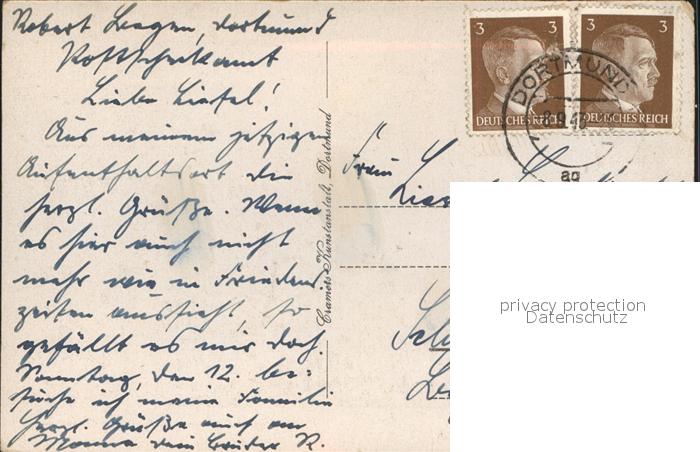 Robert Bergen, Dortmund
Postscheckamt
Liebe Liesel!
Aus meinem jetzigen
Aufenthaltsort die
herzl. Grüße. Wenn
es hier auch nicht
mehr wie in Friedens
zeiten aussieht, so
gefällt es mir doch.
Sonntag, den 12. be-
suche ich meine Familie
Herzl. Grüße auch an
Mama dein Bruder R.
Cramers Kunstanstalt, Dortmund
3 3
DEUTSCHES REICH
3 3
DEUTSCHES REICH
DORTMUND
ag
Frau
privacy protection
Datenschutz